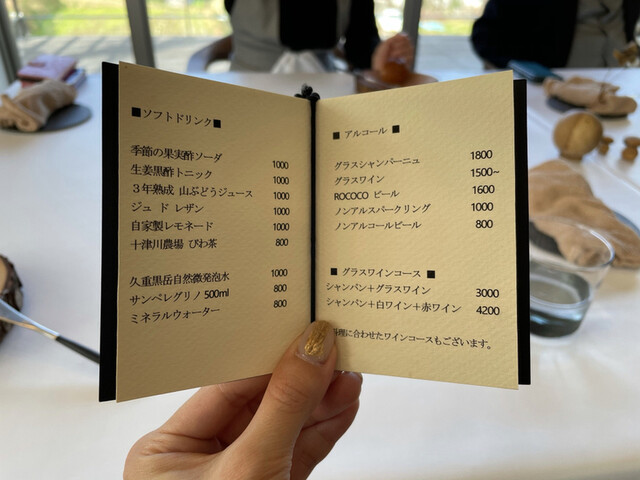 ■ソフトドリンク■
季節の果実酢ソーダ 1000
生姜黒酢トニック 1000
3年熟成 山ぶどうジュース 1000
ジュ ド レザン 1000
自家製レモネード 1000
十津川農場 びわ茶 800
久重黒岳自然微発泡水 1000
サンペレグリノ 500ml 800
ミネラルウォーター 800
■ アルコール ■
グラスシャンパーニュ 1800
グラスワイン 1500~
ROCOCO ビール 1600
ノンアルスパークリング 1000
ノンアルコールビール 800
■ グラスワインコース ■
シャンパン+グラスワイン 3000
シャンパン+白ワイン+赤ワイン 4200
料理に合わせたワインコースもございます。